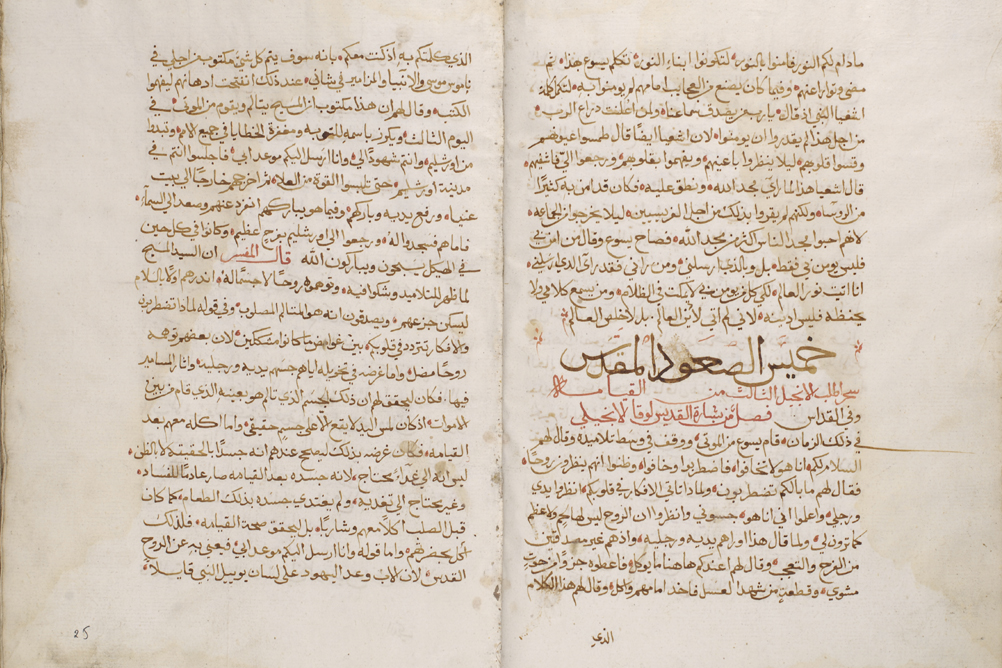 مادام لكم النور فامنوا بالنور لتكونوا ابناء النور تكلم يسوع هذا ثم
مضى وتوارا عنهم وفيما كان يصنع من العجايب امامهم لم يومنوا به لتتم كلمة
اشعيا النبي اذ قال يارب من صدق سماعنا ولمن اعلنت ذراع الرب
من اجل هذا لم يقدروا ان يومنوا لان اشعيا ايضا قال طمسوا عينهم
وقسوا قلوبهم ليلا ينظروا باعينهم ويفهموا بقلوبهم ويرجعوا الي فاشفيهم
قال اشعيا هذا لما راي مجد الله ونطق عليه فكان قد امن به كثيرا
من الروسا ولكنهم لم يقروا بذلك من اجل الفريسيين ليلا يخرجوا من الجماعه
لانهم احبوا مجد الناس اكثر من مجد الله فصاح يسوع وقال من امن بي
فليس يومن بي فقط بل وبالذي ارسلني ومن راني فقد راي الذي ارسلني
انا اتيت نور العالم لكي كل من يومن بي لا يمكث في الظلام ومن يسمع كلامي ولا
يحفظه فليس ادينه لاني لم اتي لادين العالم بل لاخلص العالم
خميس الصعود المقدس
سحر اطلب الانجيل الثالث من القيامه
وفي القداس فصل من بشارة القديس لوقا الانجيلي
في ذلك الزمان قام يسوع من الموتي ووقف في وسط تلاميذه وقال لهم
السلام لكم انا هو لا تخافوا فاضطربوا وخافوا وظنوا انهم ينظرون روحا
فقال لهم ما بالكم تضطربون ولماذا تاتي الافكار في قلوبكم انظروا يدي
ورجلي واعلموا اني انا هو جسوني وانظروا ان الروح ليس لها لحم ولا عظم
كما ترون لي ولما قال هذا اوراهم يديه ورجليه واذ هم غير مصدقين
من الفرح والتعجب وقال لهم اعندكم هاهنا ما يوكل فاعطوه جزوا من حوت
مشوي وقطعة من شهد العسل فاخد امامهم واكل وقال لهم هذا الكلام
الذي
الذي كلمتكم به اذ كنت معكم بانه سوف يتم كل شي مكتوب من اجلي في
ناموس موسى والانبيا والمزامير في شاني عند ذلك انفتحت اذهانهم ليفهموا
الكتب وقال لهم ان هذا مكتوب ان المسيح يتالم ويقوم من الموتى في
اليوم الثالث ويكرز باسمه للتوبه ومغفرة الخطايا في جميع الامم وتبتدا
من اورشليم وانتم شهودا لي وانا ارسل اليكم موعد ابي فاجلسوا انتم في
مدينة اورشليم حتى تلبسوا القوة من العلا ثم اخرجهم خارجا الي بيت
عنيا ورفع يديه وباركهم وفيما هو يباركهم انفرد عنهم وصعد الي السما
فاما هم فسجدوا له ورجعوا الي اورشليم بفرح عظيم وكانوا في كل حين
في الهيكل يسبحون ويباركون الله قال المفسر ان السيد المسيح
لما ظهر للتلاميذ وشكوا فيه وتوهموه روحا لا جسما له انذرهم اولا بالسلام
ليسكن جزعهم ويصدقون انه هو المتالم المصلوب وفي قوله لماذا تضطربون
والافكار تتردد في قلوبكم بين غوامض ما كانوا متشككين لان بعضهم توهمه
روحا مضل واما غرضه في تخويله اياهم جسم يديه ورجليه واثار المسامير
فيها فكان ليحقق لهم ان ذلك الجسم الذي تالم هو بعينه الذي قام من بين
الاموات اذ كان لمس اليد لا يقع الا على جسم حقيقي واما اكله معهم بعد
القيامه فكان غرضه بذلك ليصحح عندهم انه جسدا بالحقيقه لا بالظن
ليس انه الى غدا محتاج لانه جسده بعد القيامه صار عادما للفساد
وغير محتاج الى تغذيه ولم يغتدي جسده بذلك الطعام كما كان
قبل الصلب اكلا معهم وشاربا بل ليحقق صحة القيامه فلذلك
اكل بحضرتهم واما قوله وانا ارسل اليكم موعد ابي فيعني به عن الروح
القدس لان الاب وعد اليهود على لسان يوييل النبي قايلا
25